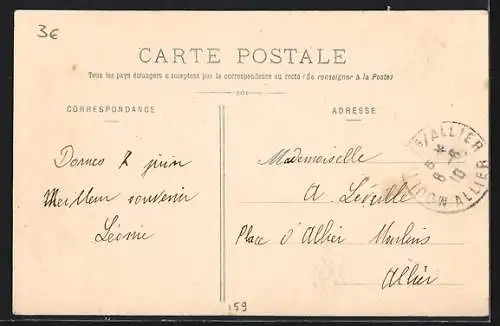 3€
CARTE POSTALE
Tous les pays étrangers n'acceptent pas la correspondance au recto (Se renseigner à la Poste)
CORRESPONDANCE
ADRESSE
Dornes 8 juin
Meilleur souvenir
Léonie
Mademoiselle
A. Léveillé
Place d'Allier Moulins
Allier
S/ALLIER
8 - 6
10
ALLIER
159